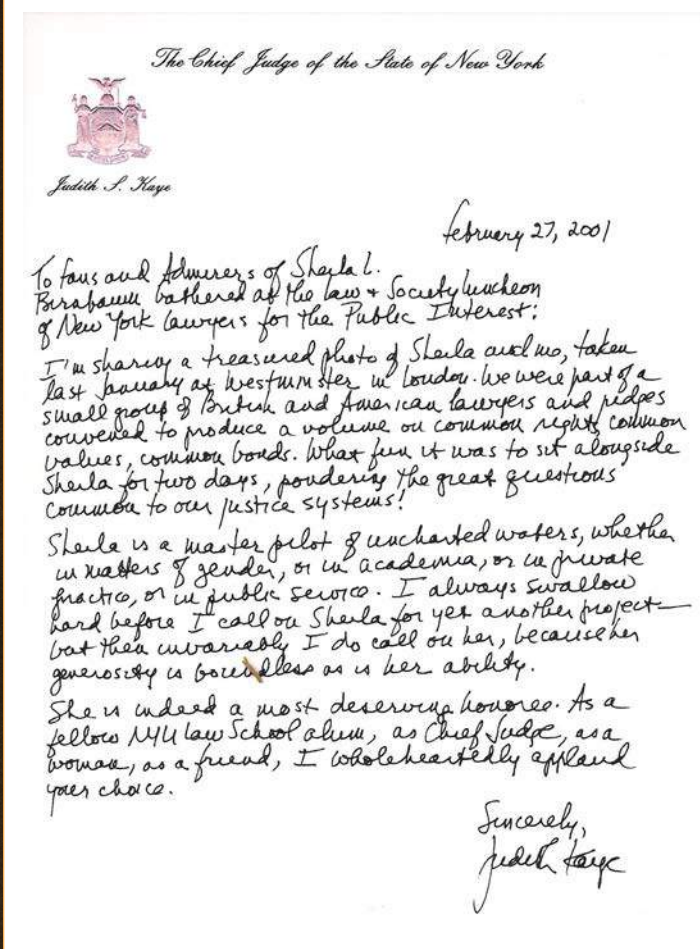 The Chief Judge of the State of New York
Judith S. Kaye
February 27, 2001
To Fans and Admirers of Sheila L.
Birnbaum Gathered at the Law + Society Luncheon
of New York Lawyers for the Public Interest:
I'm sharing a treasured photo of Sheila and me, taken
last January at Westminster in London. We were part of a
small group of British and American lawyers and judges
convened to produce a volume on common rights, common
values, common bonds. What fun it was to sit alongside
Sheila for two days, pondering the great questions
common to our justice systems!
Sheila is a master pilot of uncharted waters, whether
in matters of gender, or in academia, or in private
practice, or in public service. I always swallow
hard before I call on Sheila for yet another project—
but then invariably I do call on her, because her
generosity is boundless as is her ability.
She is indeed a most deserving honoree. As a
fellow NYU Law School alum, as Chief Judge, as a
woman, as a friend, I wholeheartedly applaud
your choice.
Sincerely,
Judith Kaye